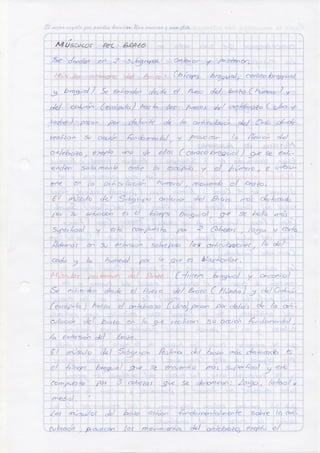 MÚSCULOS DEL BRAZO
Se dividen en 2 subgrupos anterior y posterior.
Músculos anteriores del Brazo (bíceps braquial, coracobraquial
y braquial). Se extienden desde el hueso del Brazo (húmero) y
del cinturón (escápula) hasta los huesos del antebrazo (ulna y
radio) pasan por delante de la articulación del Codo donde
realizan su acción fundamental y provocan la flexión del
antebrazo, excepto uno de ellos (coracobraquial) que se exti-
enden solamente entre la escápula y el húmero, e intervi-
ene en la articulación humeral, moviendo el brazo.
El músculo del Subgrupo anterior del Brazo más destacado
por su actuación es el bíceps braquial, que se halla más
Superficial y está compuesto por 2 Cabezas, larga y corta.
Además en su extensión sobrepasa las articulaciones, la del
codo y la humeral por lo que es biarticular.
Músculos posteriores del Brazo (tríceps braquial y ancóneo)
Se extienden desde el Hueso del Brazo (Húmero) y del Cinturón
(escápula) hasta el antebrazo (ulna), pasan por detrás de la arti-
culación del brazo en la que realizan su acción fundamental,
la extensión del brazo.
El músculo del Subgrupo Posterior del brazo más destacado es
el tríceps braquial que se encuentra más superficial y está
compuesto por 3 cabezas que se denominan: Larga, lateral y
medial.
Los músculos del brazo actúan fundamentalmente sobre la arti-
culación, provocan los movimientos del antebrazo, excepto el